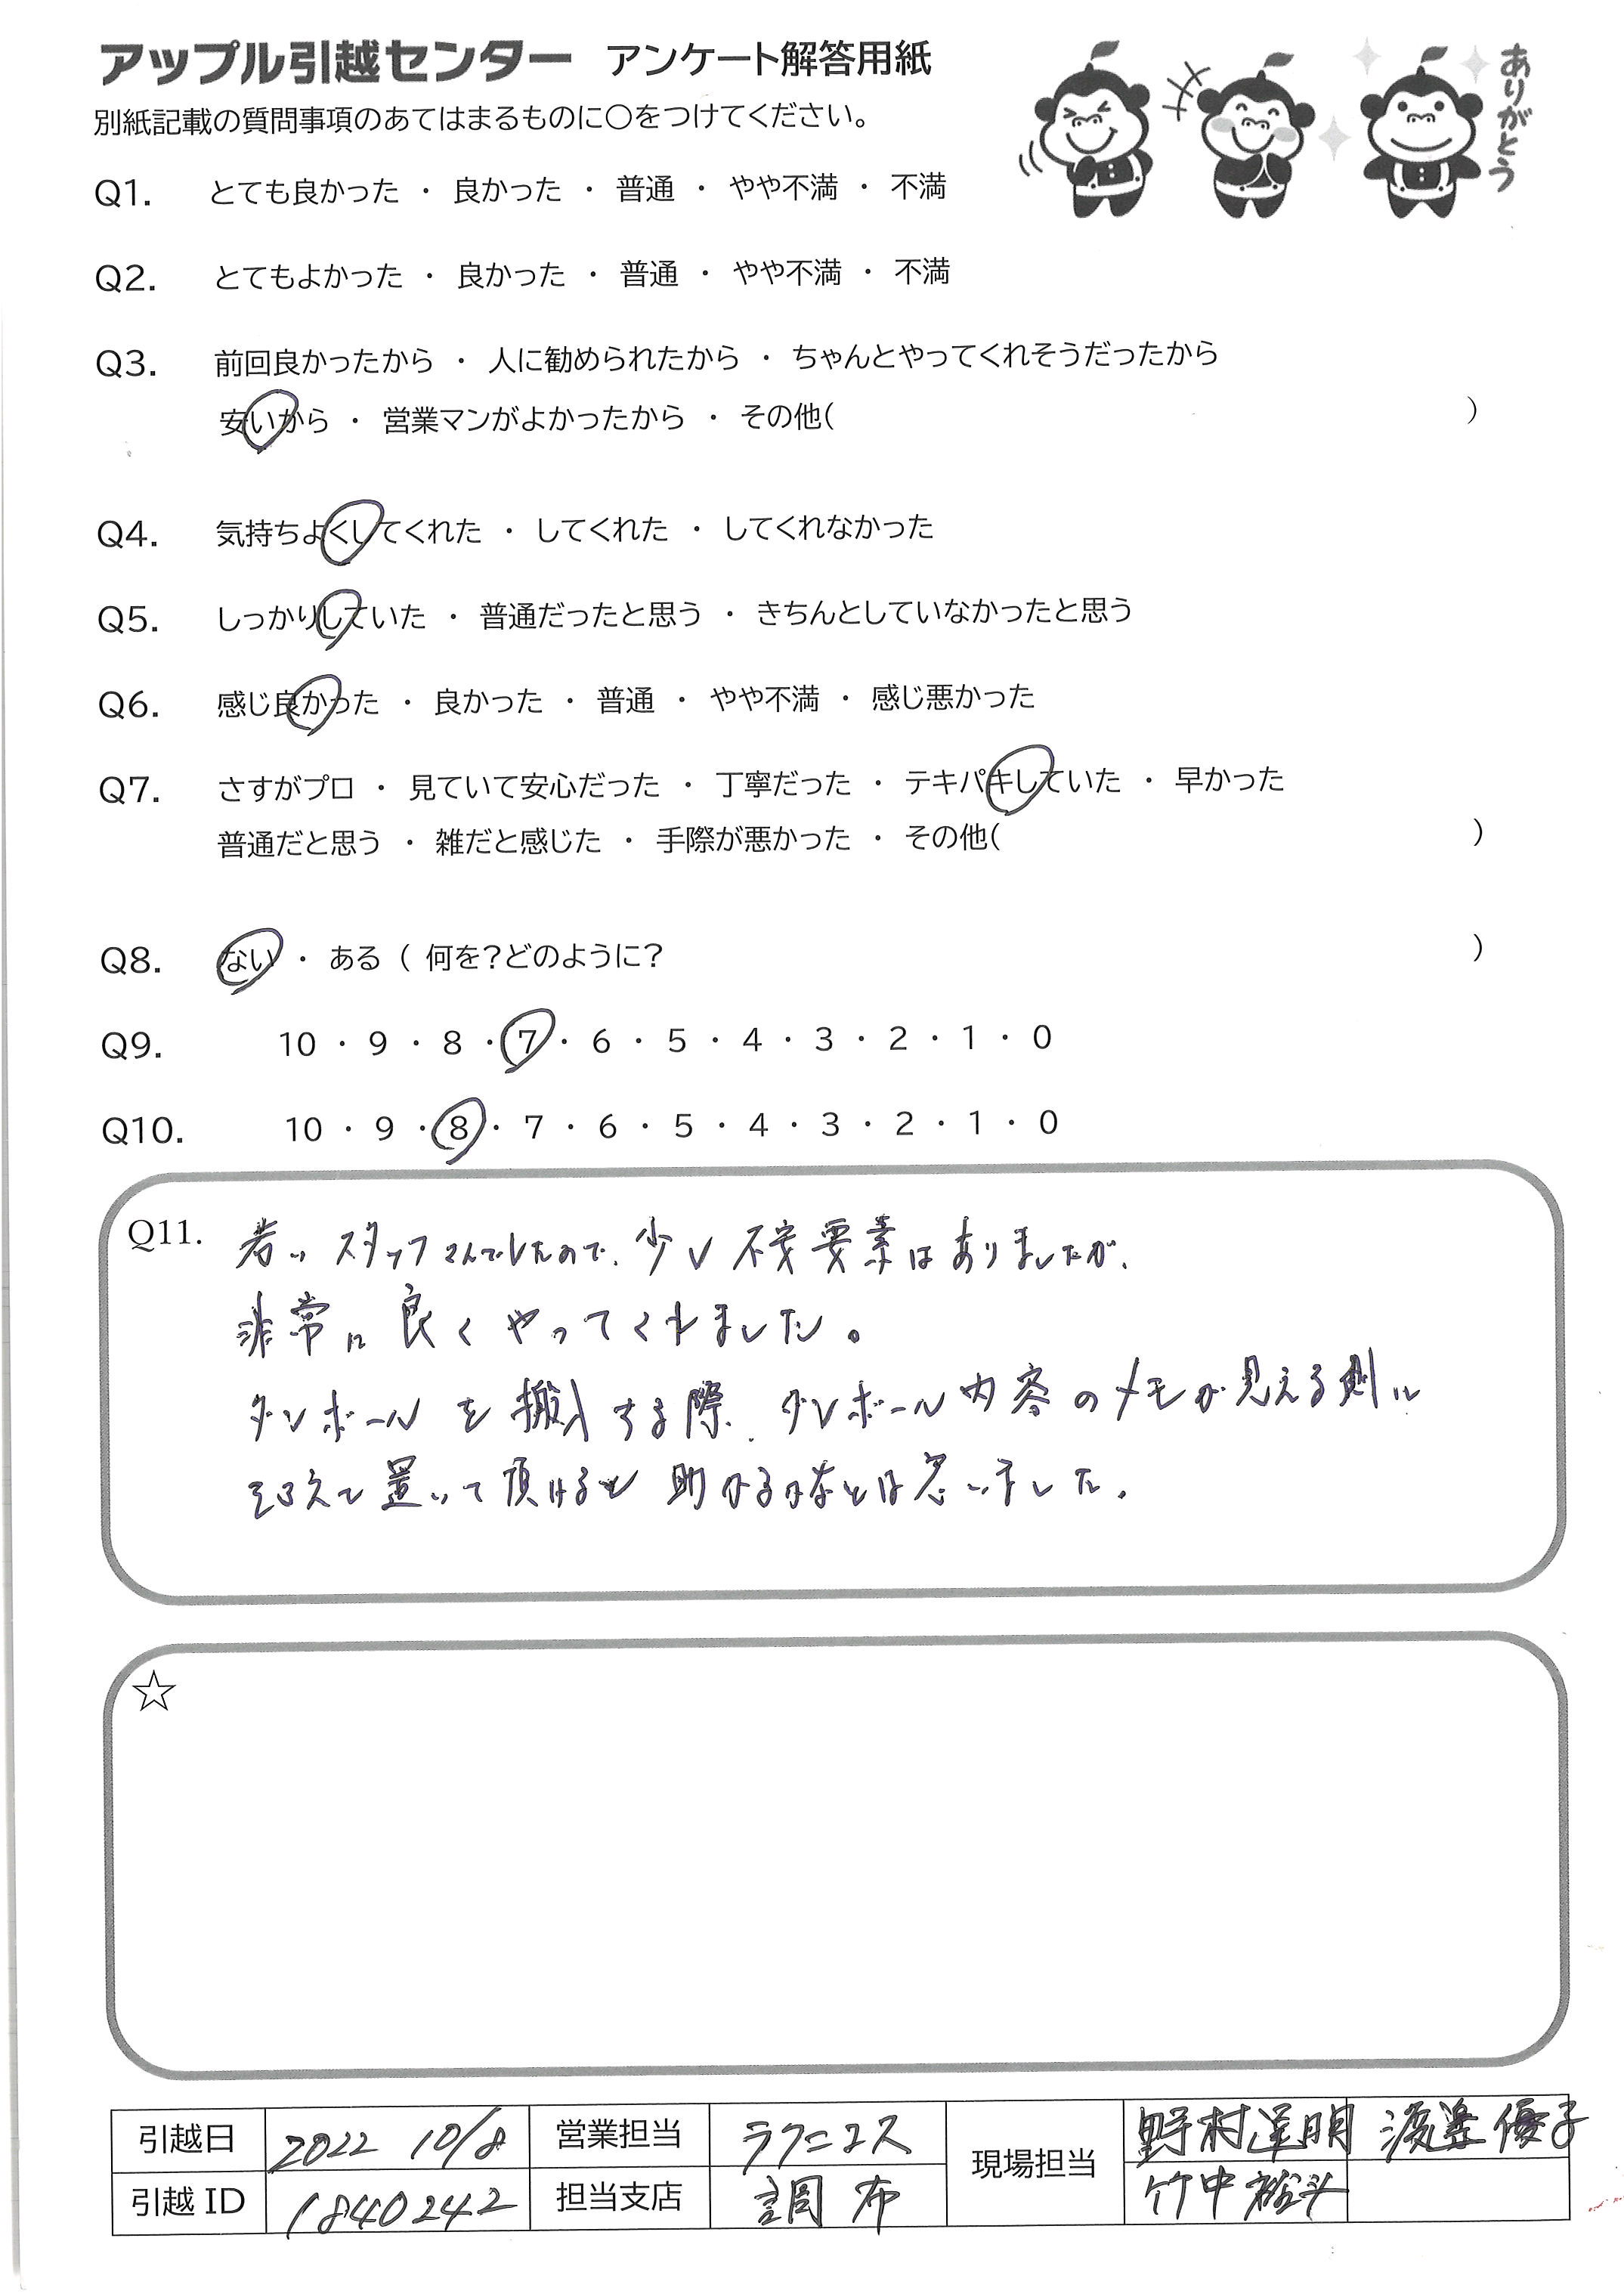 アップル引越センター アンケート解答用紙
ありがとう
別紙記載の質問事項のあてはまるものに○をつけてください。
Q1. とても良かった ・ 良かった ・ 普通 ・ やや不満 ・ 不満
Q2. とてもよかった ・ 良かった ・ 普通 ・ やや不満 ・ 不満
Q3. 前回良かったから ・ 人に勧められたから ・ ちゃんとやってくれそうだったから
安いから ・ 営業マンがよかったから ・ その他( )
Q4. 気持ちよくしてくれた ・ してくれた ・ してくれなかった
Q5. しっかりしていた ・ 普通だったと思う ・ きちんとしていなかったと思う
Q6. 感じ良かった ・ 良かった ・ 普通 ・ やや不満 ・ 感じ悪かった
Q7. さすがプロ ・ 見ていて安心だった ・ 丁寧だった ・ テキパキしていた ・ 早かった
普通だと思う ・ 雑だと感じた ・ 手際が悪かった ・ その他( )
Q8. ない ・ ある ( 何を?どのように? )
Q9. 10 ・ 9 ・ 8 ・ 7 ・ 6 ・ 5 ・ 4 ・ 3 ・ 2 ・ 1 ・ 0
Q10. 10 ・ 9 ・ 8 ・ 7 ・ 6 ・ 5 ・ 4 ・ 3 ・ 2 ・ 1 ・ 0
Q11. 若いスタッフさんでしたので、少し不安要素はありましたが、
非常に良くやってくれました。
ダンボールを搬入する際、ダンボール内容のメモが見える側に
そろえて置いて頂けると助かるかなとは思いました。
☆
引越日 2022 10/8 営業担当 ラクニコス 現場担当 野村 明 渡邊優子
引越 ID 1840242 担当支店 調布 竹中